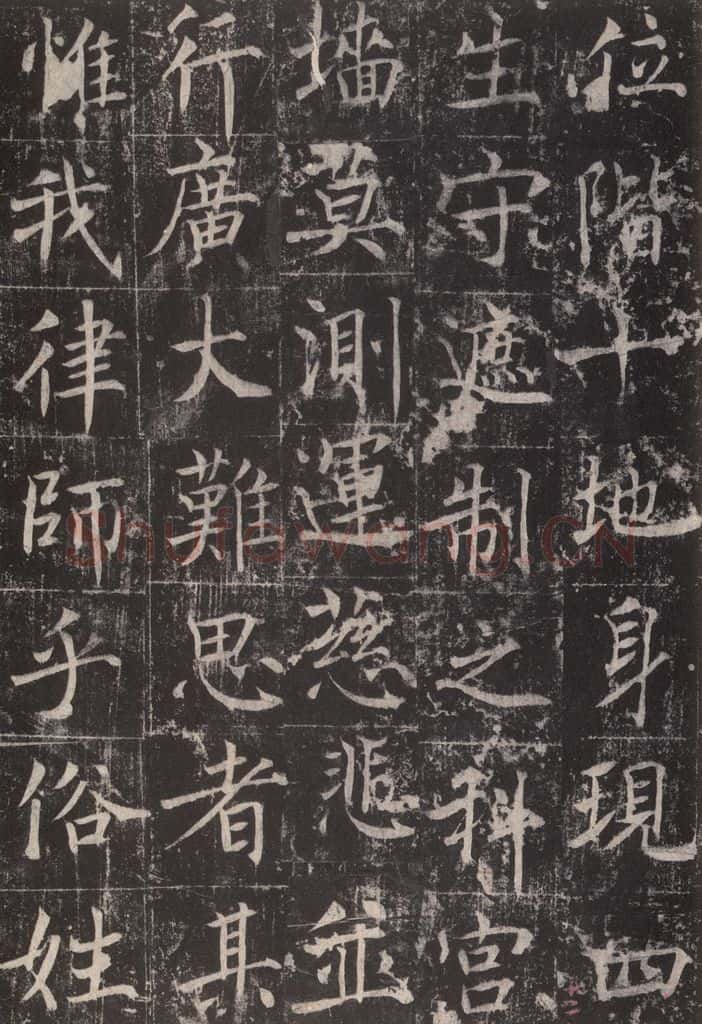 位階十地身現四
生守遮制之科宮
墻莫測運慈悲並
行廣大難思者其
惟我律師乎俗姓
Shufawang.CN